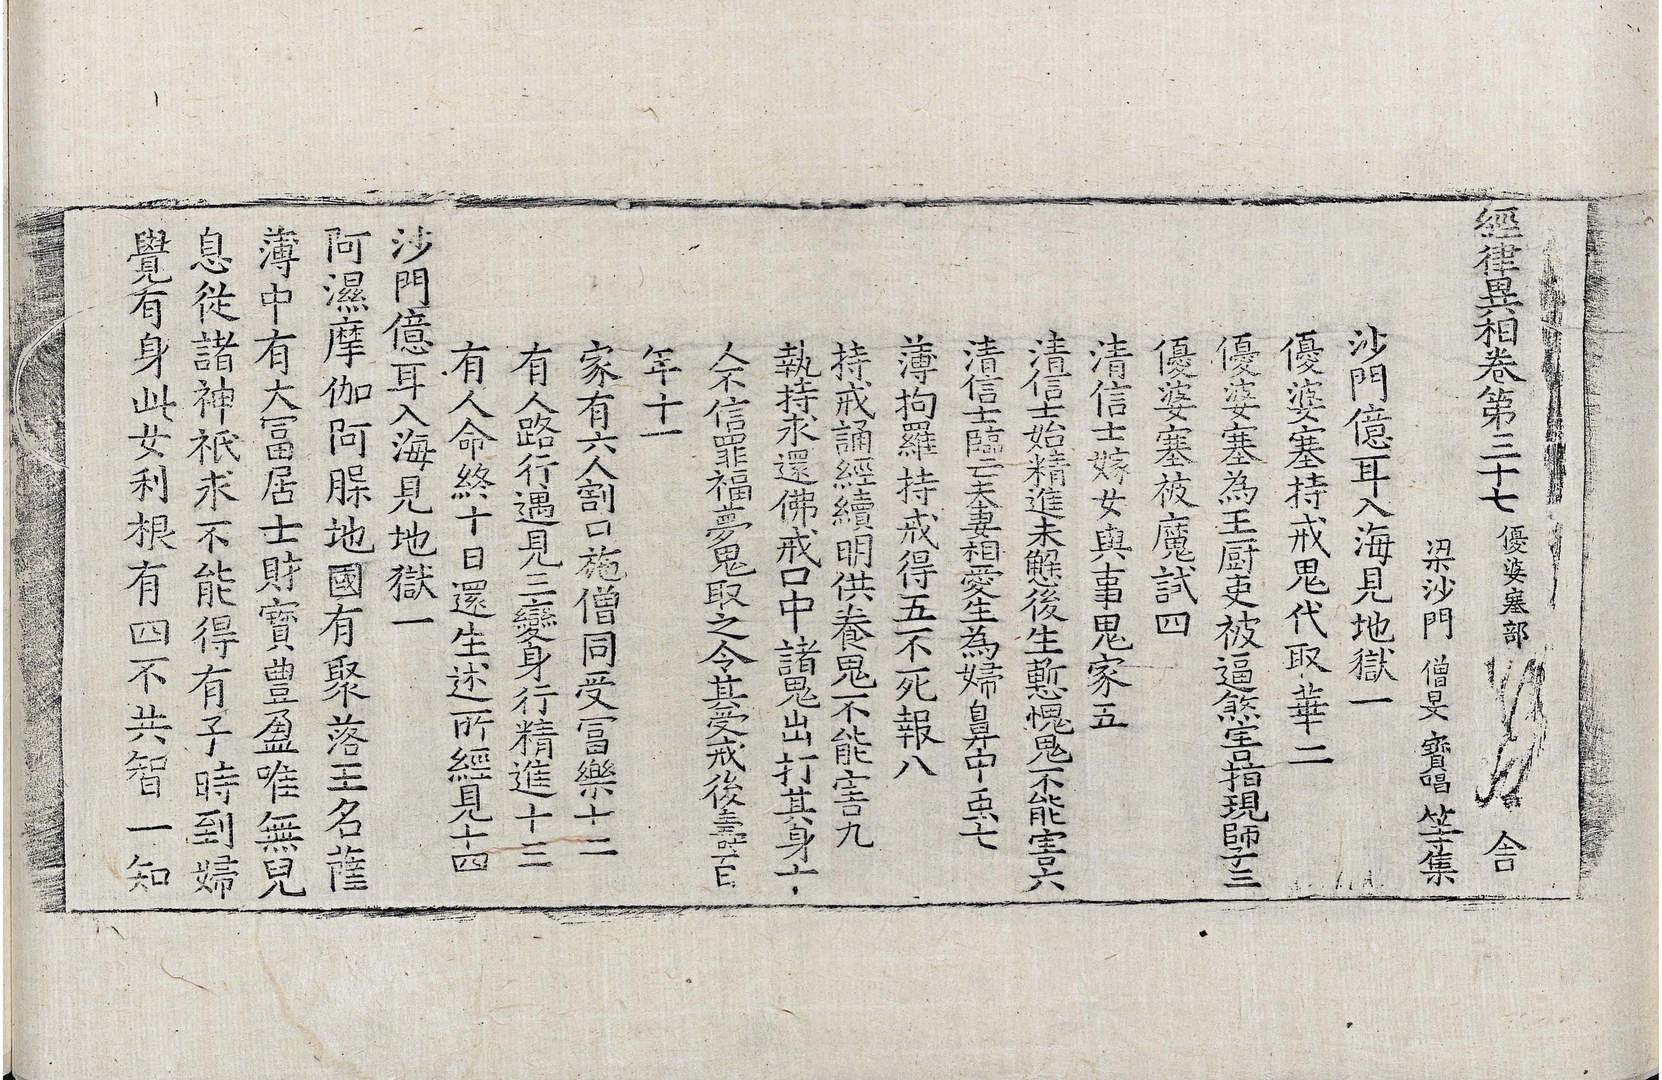 經律異相卷第三十七 優婆塞部 舍
梁沙門 僧旻 寶唱 等集
沙門億耳入海見地獄一
優婆塞持戒鬼代取華二
優婆塞為王厨吏被逼煞害指現師子三
優婆塞被魔試四
清信士嫁女與事鬼家五
清信士始精進未懈後生慙愧鬼不能害六
清信士臨亡夫妻相愛生為婦鼻中虫七
薄拘羅持戒得五不死報八
持戒誦經續明供養鬼不能害九
執持求還佛戒口中諸鬼出打其身十
人不信罪福夢鬼取之令其受戒後壽百
年十一
家有六人割口施僧同受冨樂十二
有人路行遇見三變身行精進十三
有人命終十日還生述所經見十四
沙門億耳入海見地獄一
阿濕摩伽阿䐗地國有聚落王名薩
薄中有大冨居士財寶豊盈唯無兒
息從諸神祇求不能得有子時到婦
覺有身此女利根有四不共智一知